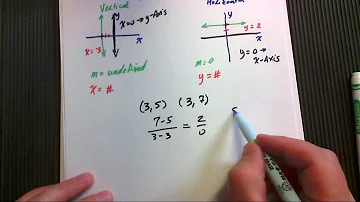 Vertical
Horizontal
y
x=0 → y-Axis
x
x=3
m = undefined
x = #
y
y=2
x
y=0 →
x-Axis
m=0
y = #
(3,5) (3,7)
7-5
3-3
=
2
0